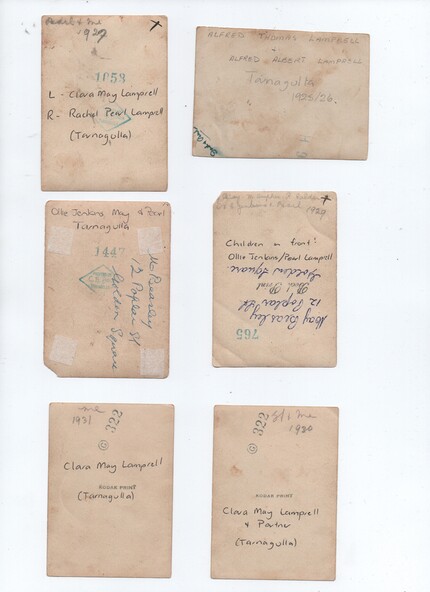 Pearl & me
1929
1053
L - Clara May Lamprell
R - Rachel Pearl Lamprell
(Tarnagulla)
ALFRED THOMAS LAMPRELL
ALFRED ALBERT LAMPRELL
Tarnagulla
1925/26.
Ollie Jenkins May & Pearl
Tarnagulla
1447
M. Beasley
12 Poplar St
Golden Square
1929
Children in front:
Ollie Jenkins/Pearl Lamprell
Golden Square
12 Poplar St
May Beasley
765
me
1931
322
Clara May Lamprell
KODAK PRINT
(Tarnagulla)
322
& me
1930
KODAK PRINT
Clara May Lamprell
& Partner
(Tarnagulla)